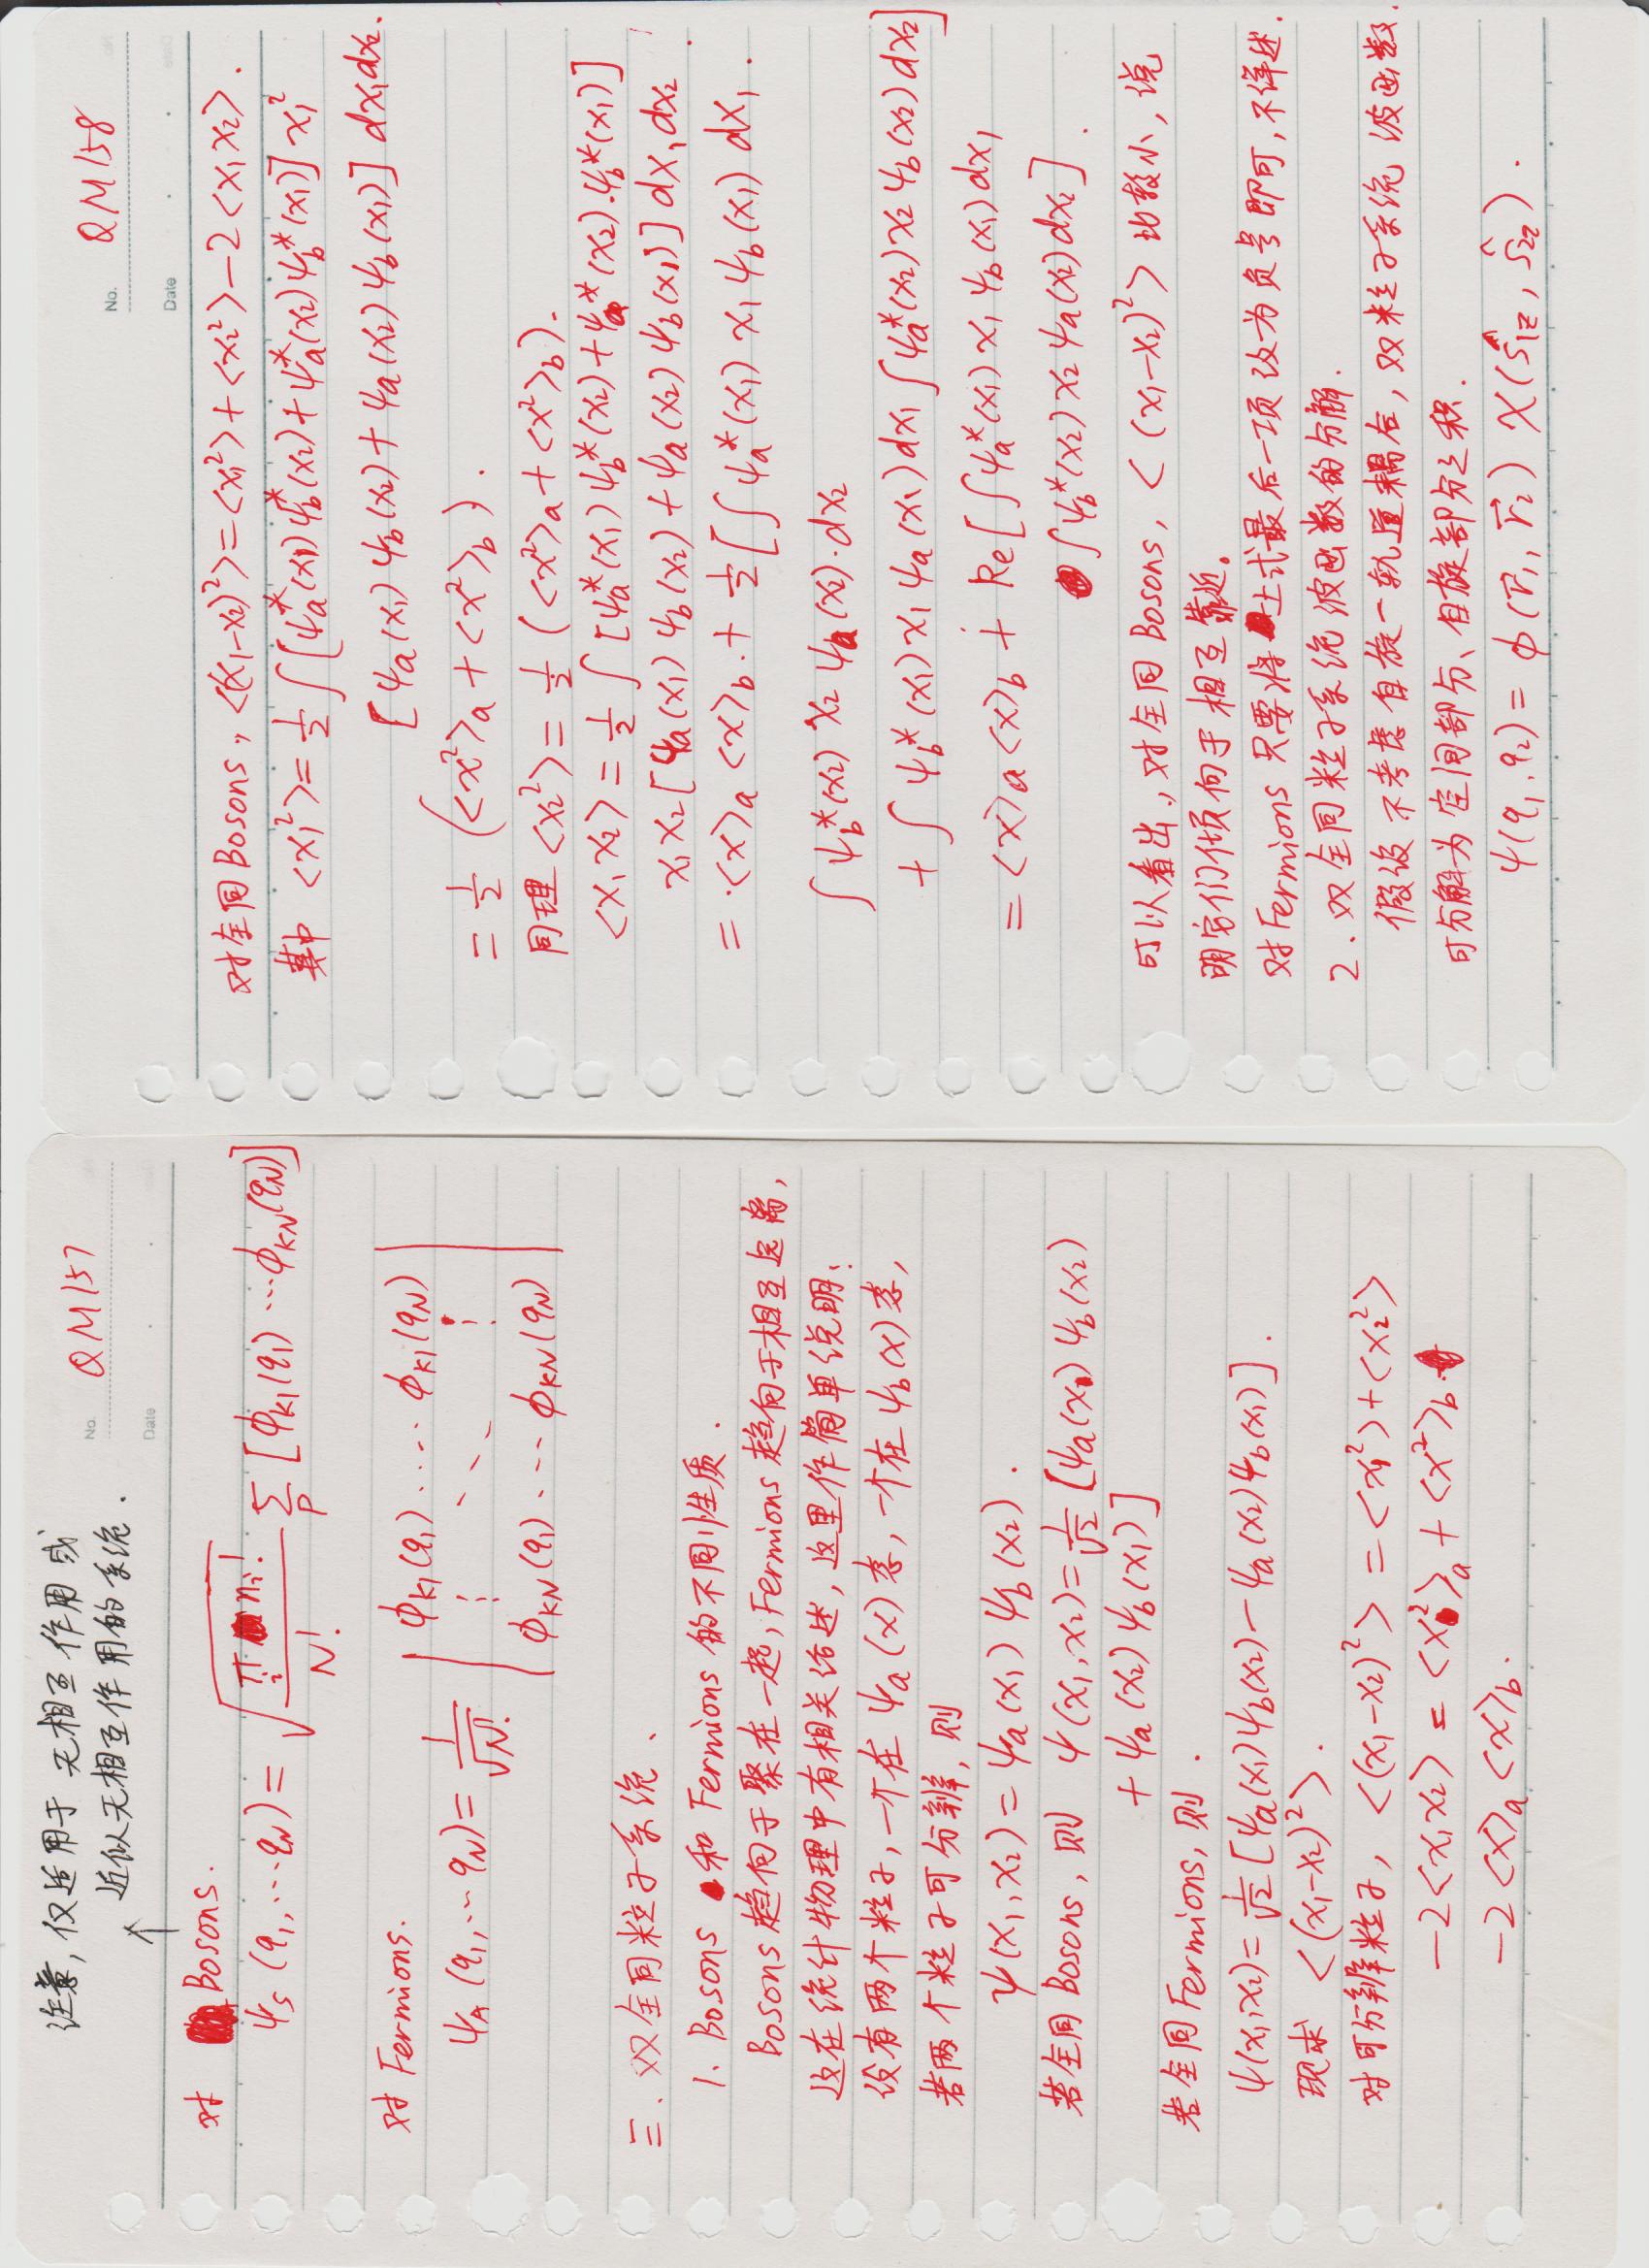 注意, 仅适用于 无相互作用或
近似无相互作用的系统.
↑
No. QM157
Date
对 Bosons.
ψ_S (q₁, ⋯ q_N) = √(∏_i n_i! / N!) Σ_P [ϕ_{K1}(q₁) ⋯ ϕ_{KN}(q_N)]
对 Fermions.
ψ_A (q₁, ⋯ q_N) = 1/√N! | ϕ_{K1}(q₁) ⋯ ϕ_{K1}(q_N)
⋮ ⋱ ⋮
ϕ_{KN}(q₁) ⋯ ϕ_{KN}(q_N) |
三. 双全同粒子系统.
1. Bosons 和 Fermions 的不同性质.
Bosons 趋向于聚在一起, Fermions 趋向于相互远离,
这在统计物理中有相关论述, 这里作简单说明:
设有两个粒子, 一个在 ψa(x) 态, 一个在 ψb(x) 态,
若两个粒子可分辨, 则
ψ(x₁, x₂) = ψa(x₁) ψb(x₂).
若全同 Bosons, 则 ψ(x₁, x₂) = 1/√2 [ψa(x₁) ψb(x₂)
+ ψa(x₂) ψb(x₁)]
若全同 Fermions, 则.
ψ(x₁, x₂) = 1/√2 [ψa(x₁) ψb(x₂) − ψa(x₂) ψb(x₁)].
现求 <(x₁−x₂)²>.
对可分辨粒子, <(x₁−x₂)²> = <x₁²> + <x₂²>
−2<x₁x₂> = <x²>a + <x²>b
−2<x>a <x>b.
No. QM158
Date
对全同 Bosons, <(x₁−x₂)²> = <x₁²> + <x₂²> − 2<x₁x₂>.
其中 <x₁²> = 1/2 ∫ [ψa*(x₁) ψb*(x₂) + ψa*(x₂) ψb*(x₁)] x₁²
[ψa(x₁) ψb(x₂) + ψa(x₂) ψb(x₁)] dx₁dx₂.
= 1/2 (<x²>a + <x²>b).
同理 <x₂²> = 1/2 (<x²>a + <x²>b).
<x₁x₂> = 1/2 ∫ [ψa*(x₁) ψb*(x₂) + ψa*(x₂).ψb*(x₁)]
x₁x₂ [ψa(x₁) ψb(x₂) + ψa(x₂) ψb(x₁)] dx₁dx₂.
= <x>a <x>b + 1/2 [∫ ψa*(x₁) x₁ ψb(x₁) dx₁.
∫ ψb*(x₂) x₂ ψa(x₂)·dx₂
+ ∫ ψb*(x₁) x₁ ψa(x₁) dx₁ ∫ ψa*(x₂) x₂ ψb(x₂) dx₂]
= <x>a <x>b + Re[∫ ψa*(x₁) x₁ ψb(x₁) dx₁
∫ ψb*(x₂) x₂ ψa(x₂) dx₂].
可以看出, 对全同 Bosons, <(x₁−x₂)²> 比较小, 说
明它们倾向于相互靠近。
对 Fermions 只要将上式最后一项改为负号即可, 不详述.
2. 双全同粒子系统波函数的分解.
假设不考虑自旋−轨道耦合, 双粒子系统波函数.
可分解为空间部分、自旋部分之积.
ψ(q₁, q₂) = ϕ(r⃗₁, r⃗₂) χ(ŝ₁z, ŝ₂z).